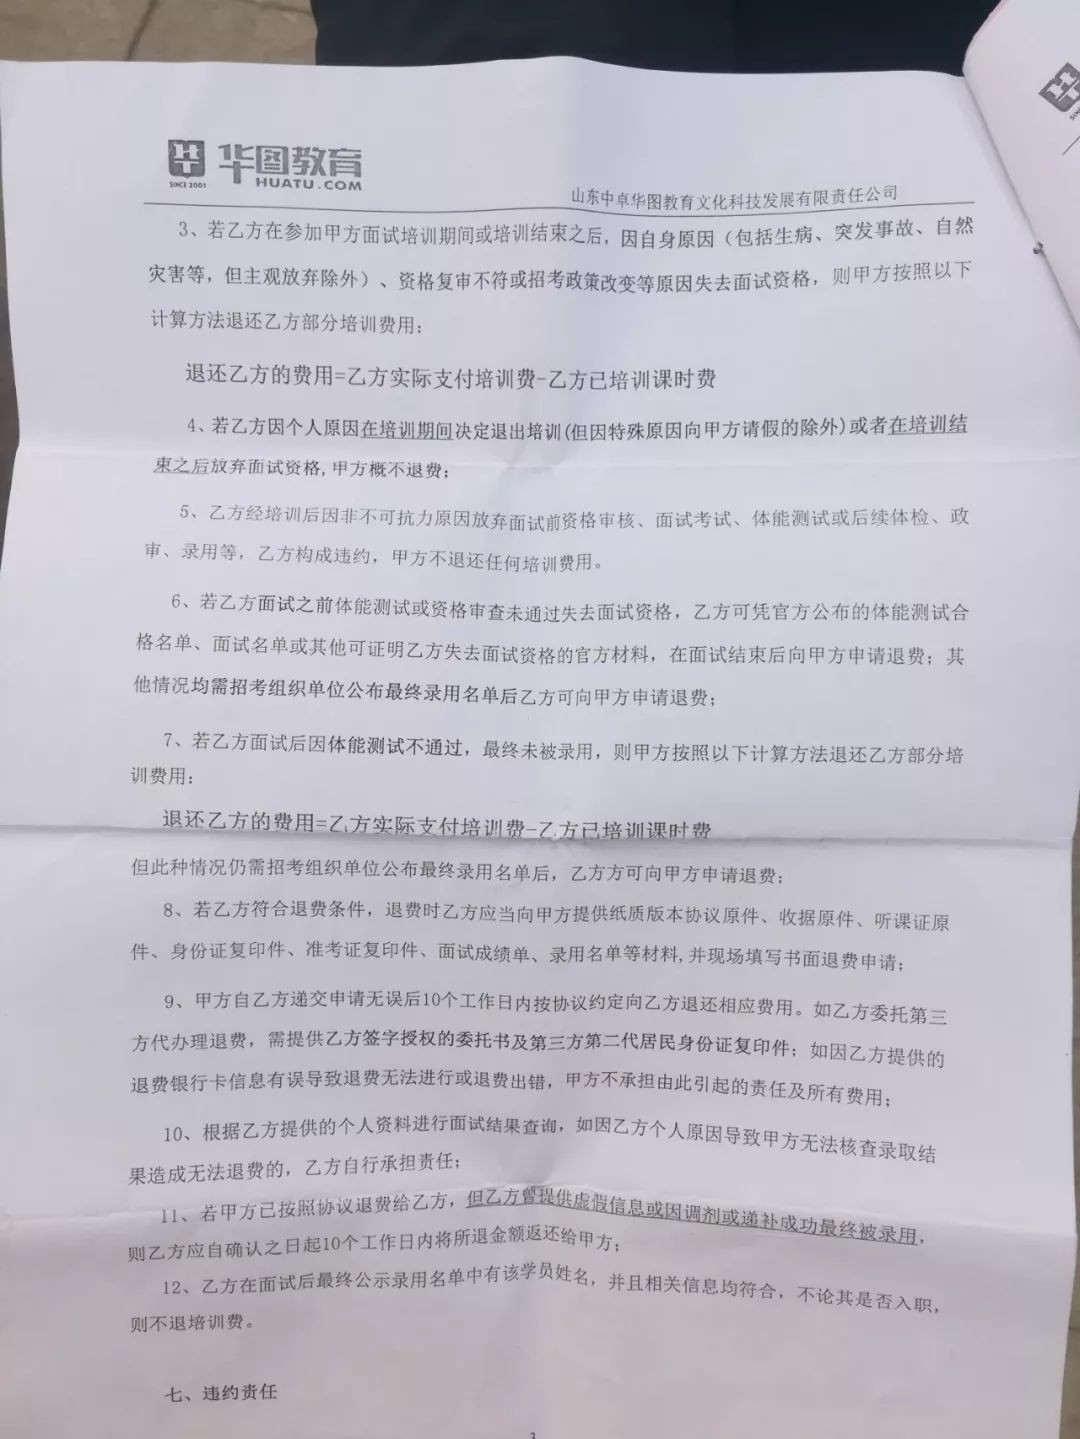 华图教育
HUATU.COM
SINCE 2001
山东中卓华图教育文化科技发展有限责任公司
3、若乙方在参加甲方面试培训期间或培训结束之后，因自身原因（包括生病、突发事故、自然
灾害等，但主观放弃除外）、资格复审不符或招考政策改变等原因失去面试资格，则甲方按照以下
计算方法退还乙方部分培训费用：
退还乙方的费用=乙方实际支付培训费-乙方已培训课时费
4、若乙方因个人原因在培训期间决定退出培训(但因特殊原因向甲方请假的除外)或者在培训结
束之后放弃面试资格,甲方概不退费；
5、乙方经培训后因非不可抗力原因放弃面试前资格审核、面试考试、体能测试或后续体检、政
审、录用等，乙方构成违约，甲方不退还任何培训费用。
6、若乙方面试之前体能测试或资格审查未通过失去面试资格，乙方可凭官方公布的体能测试合
格名单、面试名单或其他可证明乙方失去面试资格的官方材料，在面试结束后向甲方申请退费；其
他情况均需招考组织单位公布最终录用名单后乙方可向甲方申请退费；
7、若乙方面试后因体能测试不通过，最终未被录用，则甲方按照以下计算方法退还乙方部分培
训费用：
退还乙方的费用=乙方实际支付培训费-乙方已培训课时费
但此种情况仍需招考组织单位公布最终录用名单后，乙方方可向甲方申请退费；
8、若乙方符合退费条件，退费时乙方应当向甲方提供纸质版本协议原件、收据原件、听课证原
件、身份证复印件、准考证复印件、面试成绩单、录用名单等材料,并现场填写书面退费申请；
9、甲方自乙方递交申请无误后10个工作日内按协议约定向乙方退还相应费用。如乙方委托第三
方代办理退费，需提供乙方签字授权的委托书及第三方第二代居民身份证复印件；如因乙方提供的
退费银行卡信息有误导致退费无法进行或退费出错，甲方不承担由此引起的责任及所有费用；
10、根据乙方提供的个人资料进行面试结果查询，如因乙方个人原因导致甲方无法核查录取结
果造成无法退费的，乙方自行承担责任；
11、若甲方已按照协议退费给乙方，但乙方曾提供虚假信息或因调剂或递补成功最终被录用，
则乙方应自确认之日起10个工作日内将所退金额返还给甲方；
12、乙方在面试后最终公示录用名单中有该学员姓名，并且相关信息均符合，不论其是否入职，
则不退培训费。
七、违约责任
3